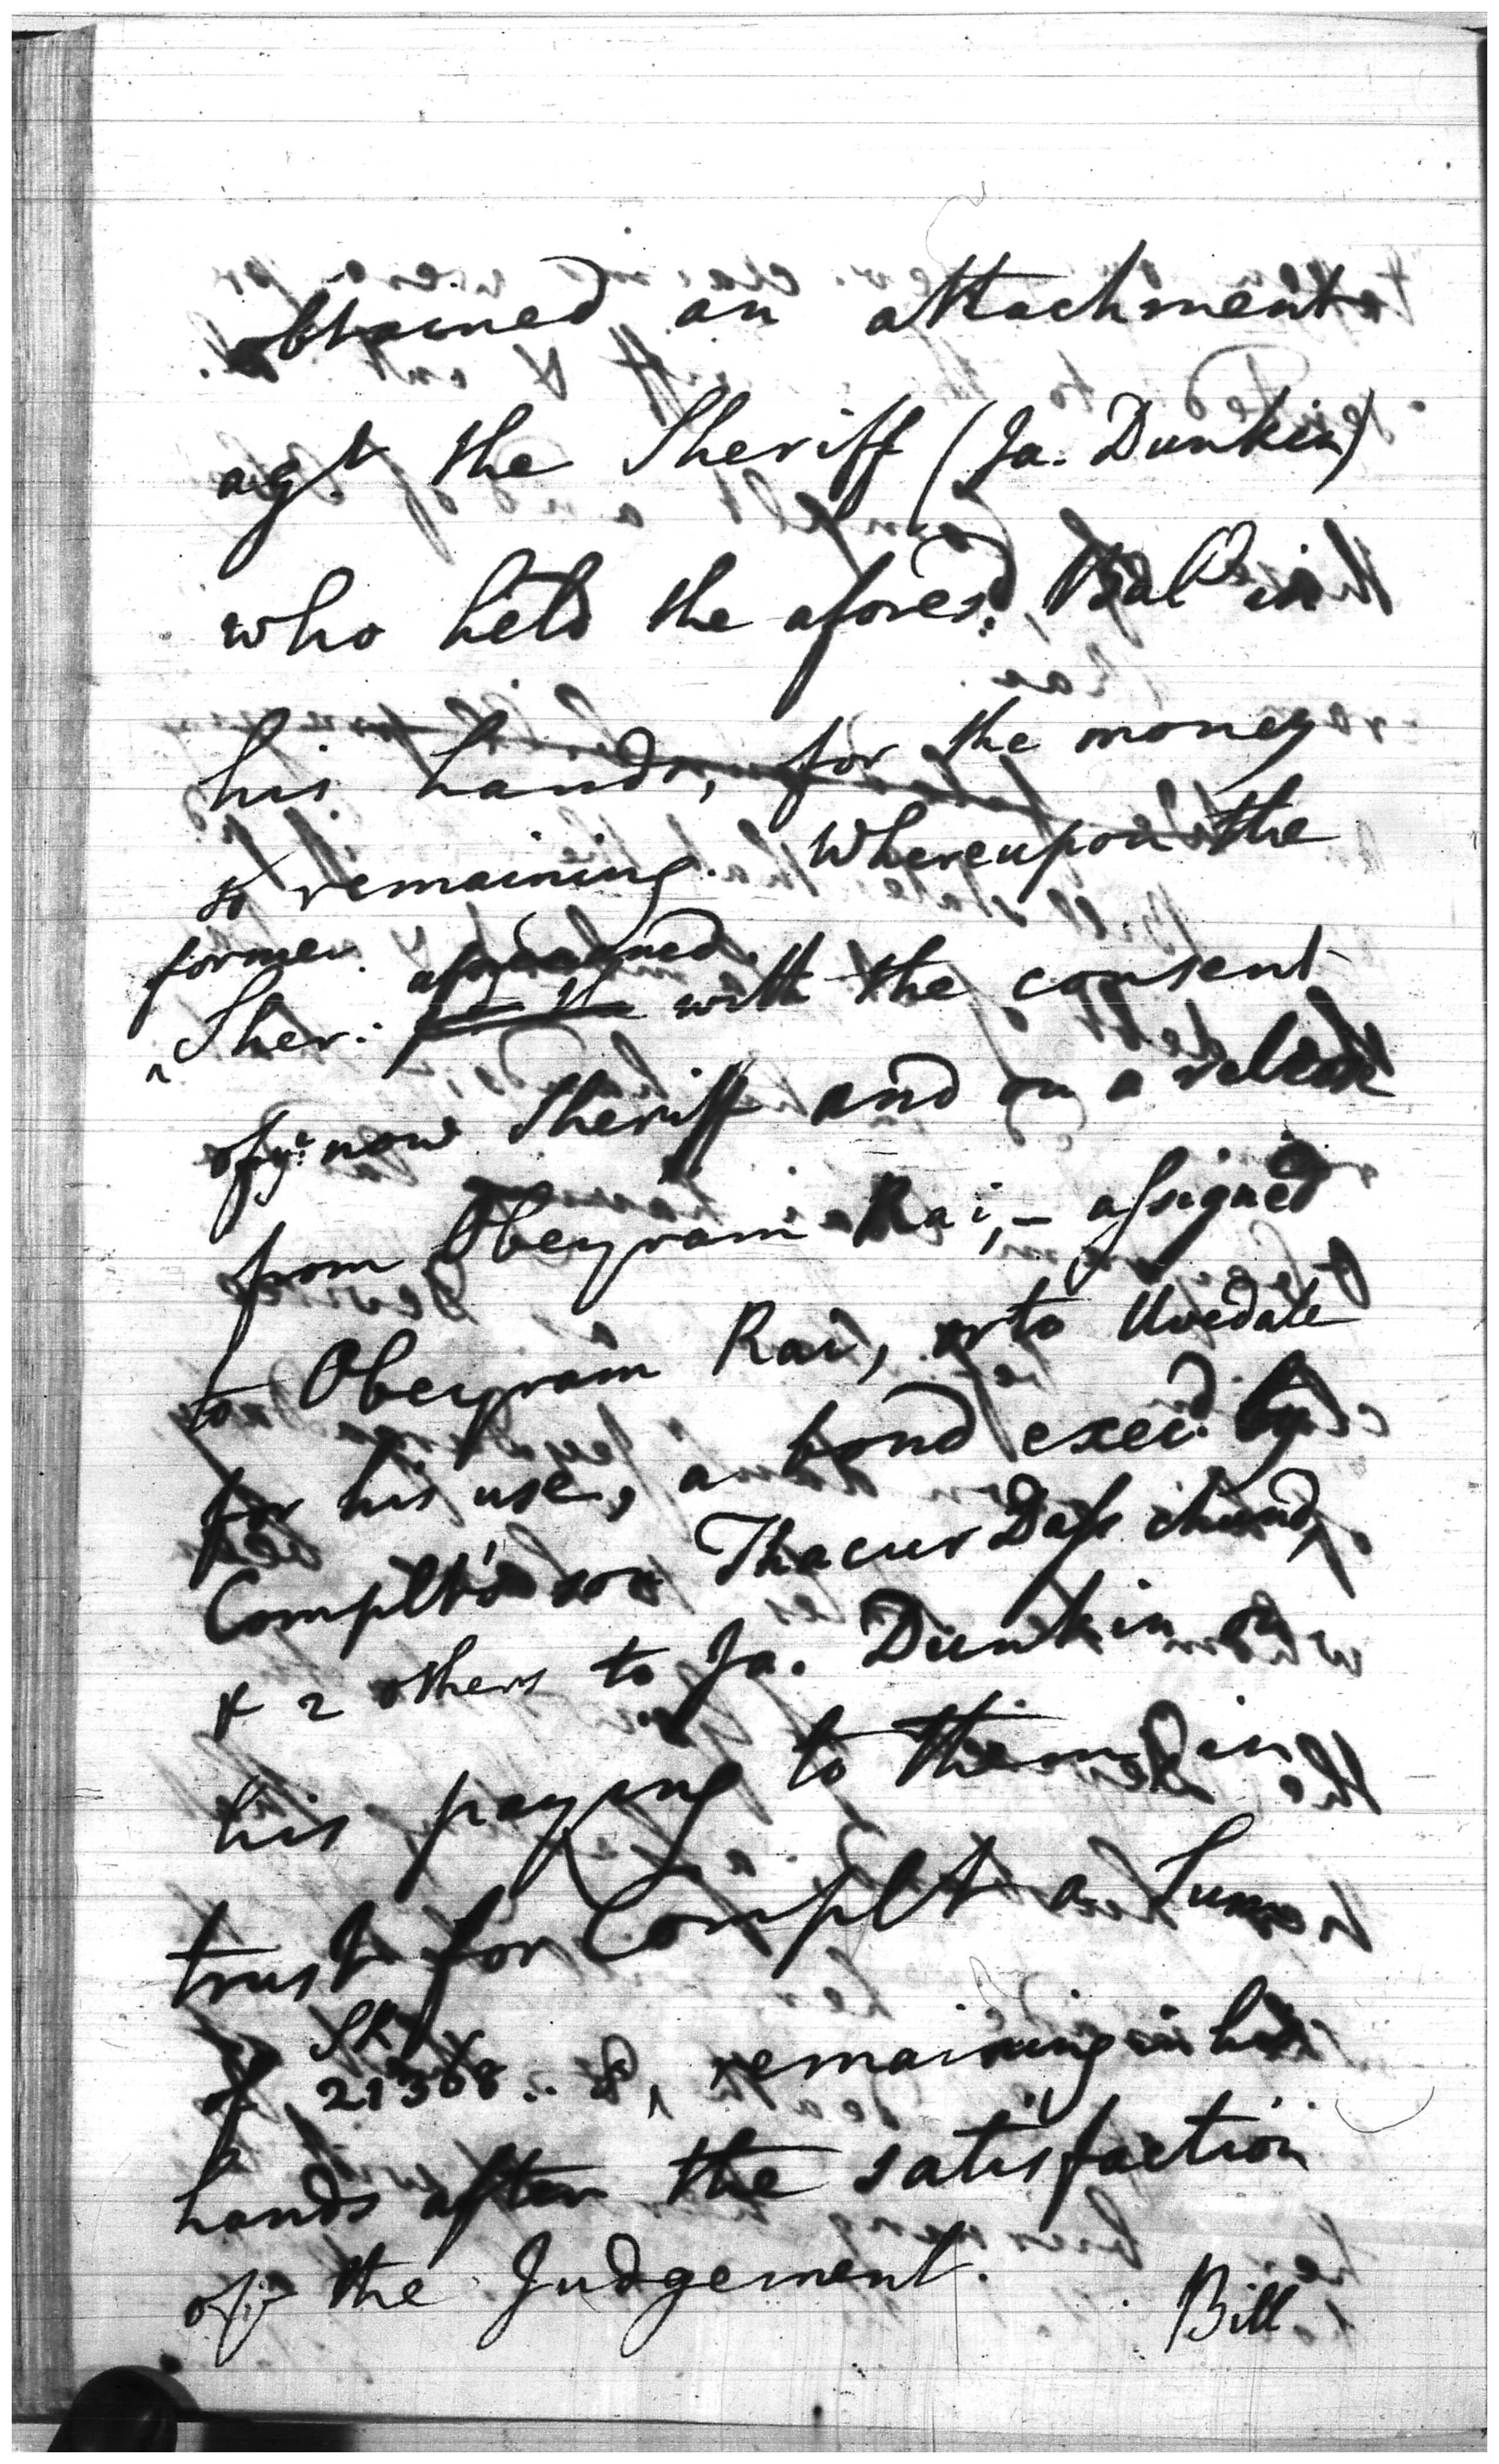 obtained an attachment
agt the Sheriff (Ja. Dunkin)
who held the aforesd. Balce in
his hands, for the money
so remaining. Whereupon the
former
Sher: with the consent
of ye now Sheriff and on a release
from Obeyram Rai, – assigned
to Obeyram Rai, or to Uvedale
for his use, a bond execd. by
Complt's son Thacur Dass chund,
& 2 others to Ja. Dunkin on
his paying to them in
trust for Complt a Sum
of SRs 21368.. 8, remaining in his
hands after the satisfaction
of the Judgement.
Bill